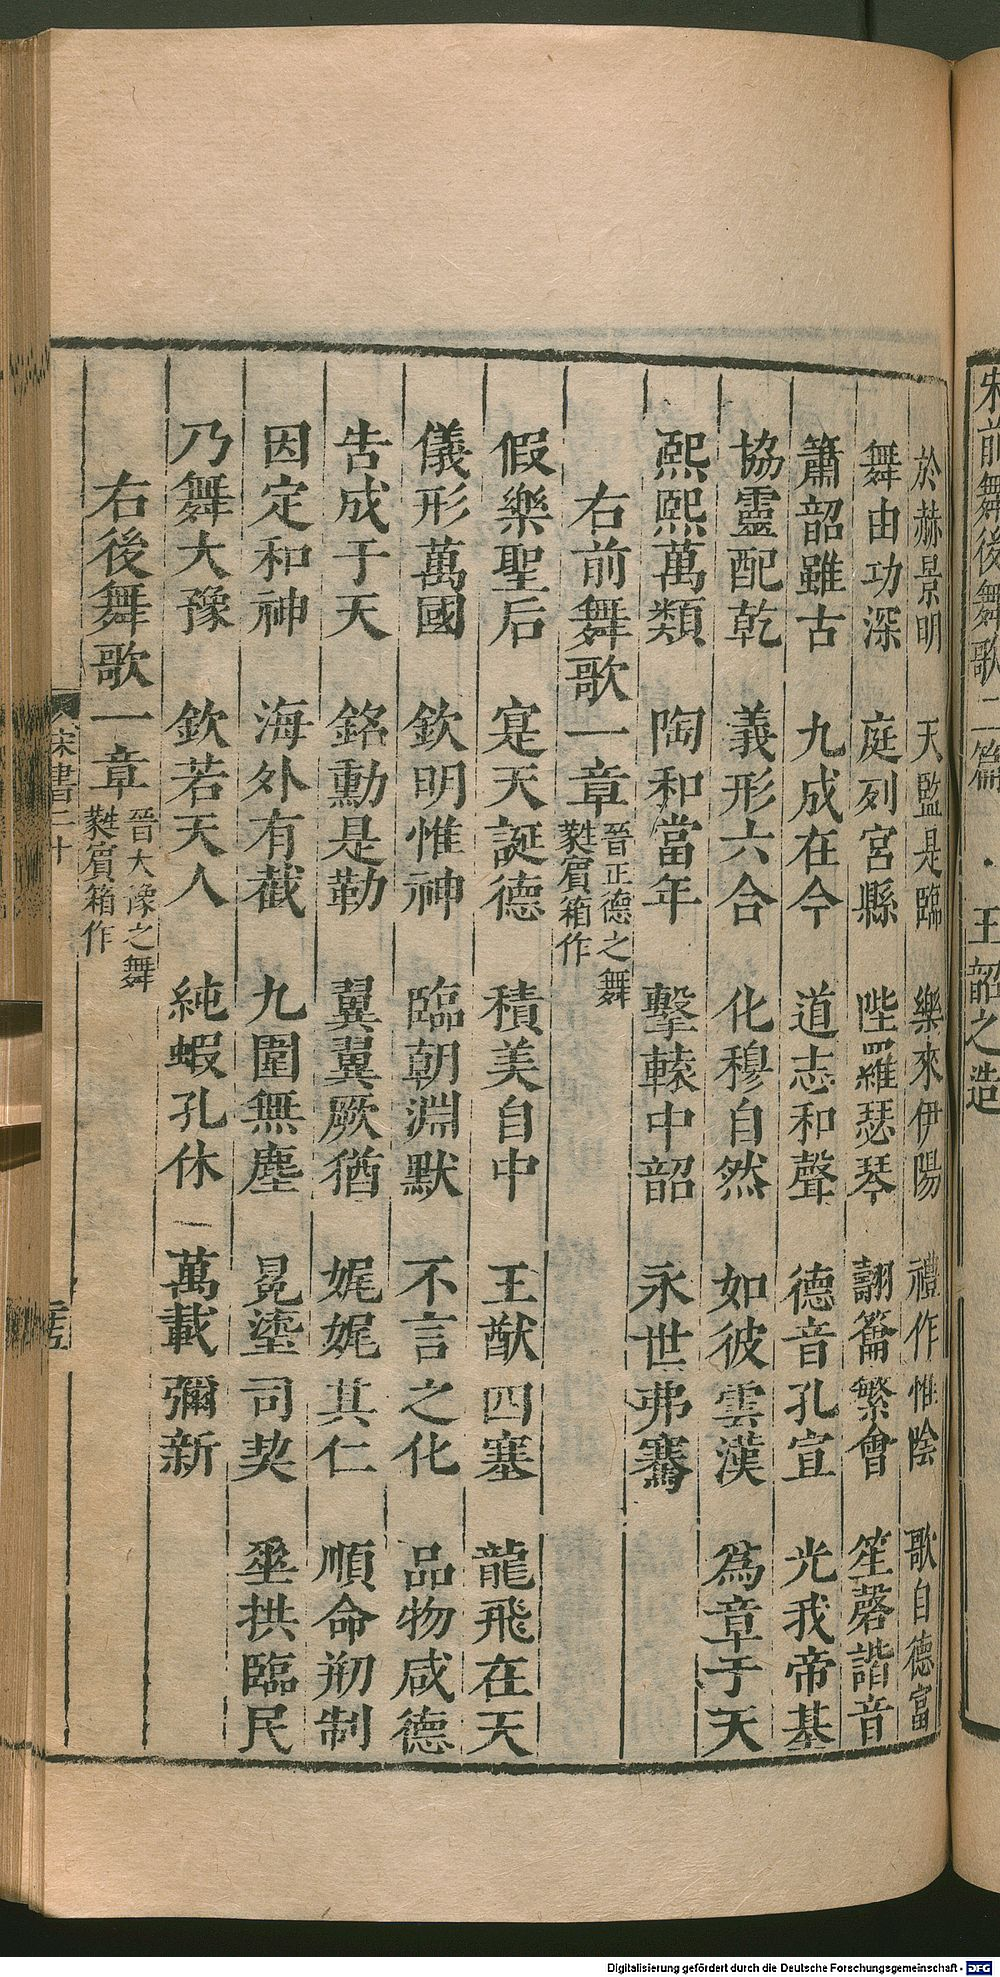 宋前舞後舞歌二篇 · 王韶之造
於赫景明 天監是臨 樂來伊陽 禮作惟陰 歌自德富
舞由功深 庭列宮縣 陛羅瑟琴 翿籥繁會 笙磬諧音
簫韶雖古 九成在今 道志和聲 德音孔宣 光我帝基
協靈配乾 義形六合 化穆自然 如彼雲漢 爲章于天
熙熙萬類 陶和當年 擊轅中韶 永世弗騫
右前舞歌一章 晉正德之舞
蕤賓箱作
假樂聖后 寔天誕德 積美自中 王猷四塞 龍飛在天
儀形萬國 欽明惟神 臨朝淵默 不言之化 品物咸德
告成于天 銘勳是勒 翼翼厥猶 娓娓其仁 順命刱制
因定和神 海外有截 九圍無塵 冕瑬司契 垂拱臨民
乃舞大豫 欽若天人 純嘏孔休 萬載彌新
右後舞歌一章 晉大豫之舞
蕤賓箱作
宋書二十
Digitalisierung gefördert durch die Deutsche Forschungsgemeinschaft - DFG